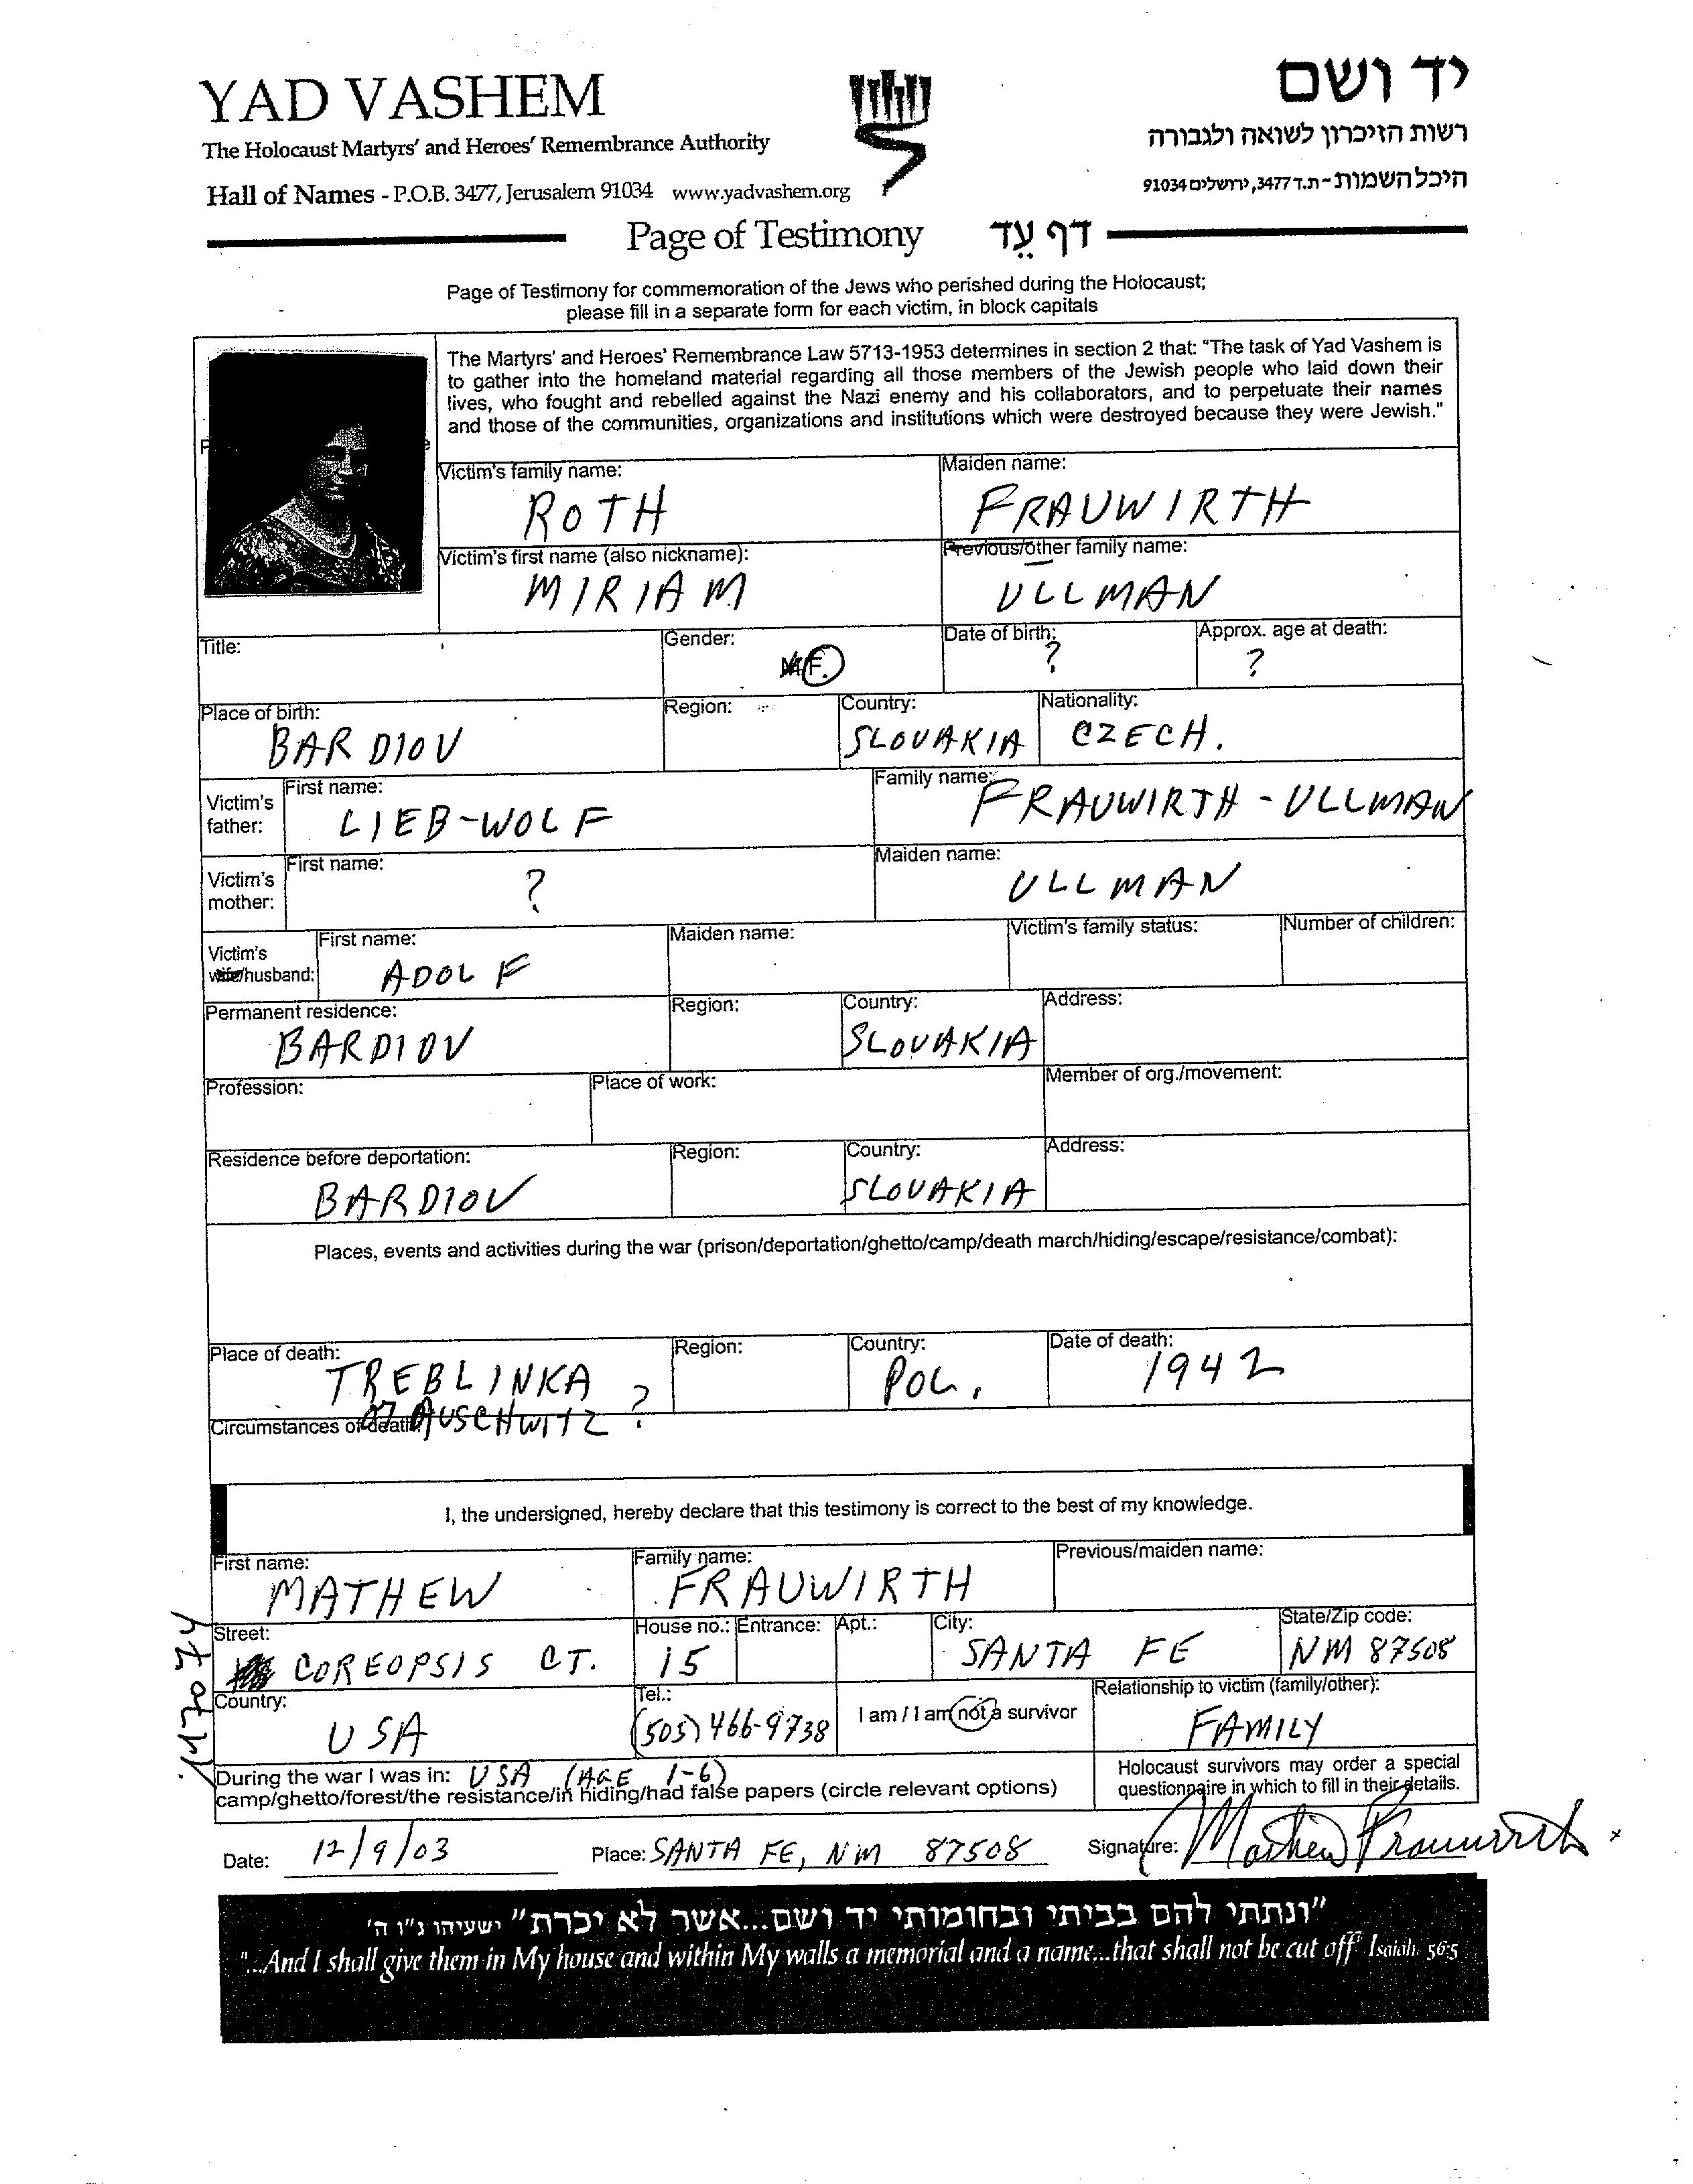 YAD VASHEM
יד ושם
The Holocaust Martyrs' and Heroes' Remembrance Authority
רשות הזיכרון לשואה ולגבורה
Hall of Names - P.O.B. 3477, Jerusalem 91034 www.yadvashem.org
היכל השמות - ת.ד 3477, ירושלים 91034
Page of Testimony דף עֵד
Page of Testimony for commemoration of the Jews who perished during the Holocaust;
please fill in a separate form for each victim, in block capitals
The Martyrs' and Heroes' Remembrance Law 5713-1953 determines in section 2 that: "The task of Yad Vashem is
to gather into the homeland material regarding all those members of the Jewish people who laid down their
lives, who fought and rebelled against the Nazi enemy and his collaborators, and to perpetuate their names
and those of the communities, organizations and institutions which were destroyed because they were Jewish."
Victim's family name: Maiden name:
ROTH FRAUWIRTH
Victim's first name (also nickname): Previous/other family name:
MIRIAM ULLMAN
Title: Gender: Date of birth: Approx. age at death:
M/F. ? ?
Place of birth: Region: Country: Nationality:
BARDIOV SLOVAKIA CZECH.
Victim's father: First name: Family name:
LIEB-WOLF FRAUWIRTH - ULLMAN
Victim's mother: First name: Maiden name:
? ULLMAN
Victim's wife/husband: First name: Maiden name: Victim's family status: Number of children:
ADOLF
Permanent residence: Region: Country: Address:
BARDIOV SLOVAKIA
Profession: Place of work: Member of org./movement:
Residence before deportation: Region: Country: Address:
BARDIOV SLOVAKIA
Places, events and activities during the war (prison/deportation/ghetto/camp/death march/hiding/escape/resistance/combat):
Place of death: Region: Country: Date of death:
TREBLINKA ? POL. 1942
Circumstances of death: AUSCHWITZ
I, the undersigned, hereby declare that this testimony is correct to the best of my knowledge.
First name: Family name: Previous/maiden name:
MATHEW FRAUWIRTH
Street: House no.: Entrance: Apt.: City: State/Zip code:
COREOPSIS CT. 15 SANTA FE NM 87508
Country: Tel.: I am / I am not a survivor Relationship to victim (family/other):
USA (505) 466-9738 FAMILY
During the war I was in: USA (AGE 1-6)
camp/ghetto/forest/the resistance/in hiding/had false papers (circle relevant options)
Holocaust survivors may order a special
questionnaire in which to fill in their details.
Date: 12/9/03 Place: SANTA FE, NM 87508 Signature: Mathew Frauwirth
"ונתתי להם בביתי ובחומותי יד ושם...אשר לא יכרת" ישעיהו נ"ו ה'
"...And I shall give them in My house and within My walls a memorial and a name...that shall not be cut off" Isaiah. 56:5